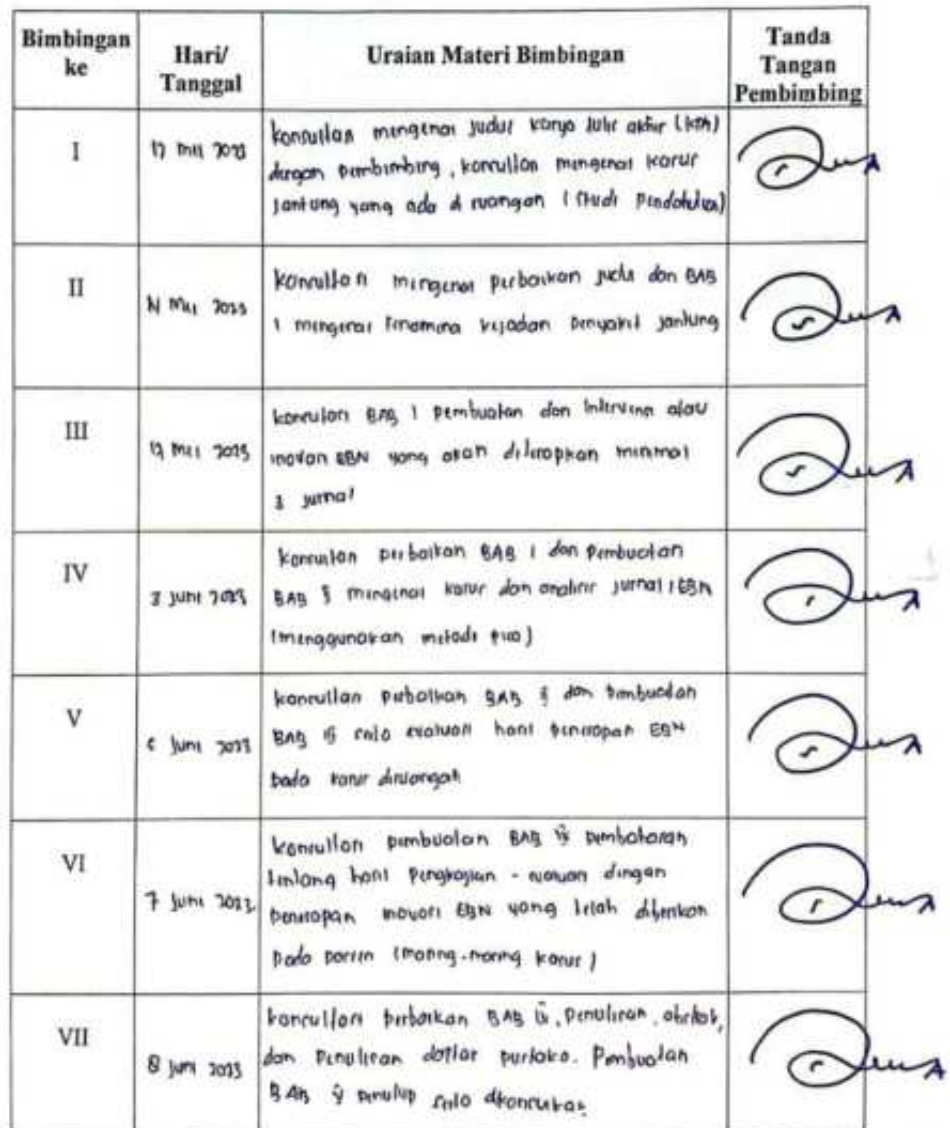 Bimbingan ke
Hari/ Tanggal
Uraian Materi Bimbingan
Tanda Tangan Pembimbing
I
Mei 2023
konsultasi mengenai judul karya tulis akhir (KIA)
dengan pembimbing, konsultasi mengenai kasus
jantung yang ada di ruangan (Studi Pendahuluan)
II
Mei 2023
konsultasi mengenai perbaikan judul dan BAB
1 mengenai fenomena kejadian penyakit jantung
III
Mei 2023
konsultasi BAB 1 pembuatan dan intervensi atau
inovasi EBN yang akan diterapkan minimal
3 jurnal
IV
3 Juni 2023
konsultasi perbaikan BAB 1 dan pembuatan
BAB mengenai kasus dan analisis jurnal / EBN
(menggunakan metode pico)
V
6 Juni 2023
konsultasi perbaikan BAB dan pembuatan
BAB serta evaluasi hasil penerapan EBN
pada kasus diruangan
VI
7 Juni 2023
konsultasi pembuatan BAB pembahasan
tentang hasil pengkajian - evaluasi dengan
penerapan inovasi EBN yang telah diberikan
pada pasien (masing-masing kasus)
VII
8 Juni 2023
konsultasi perbaikan BAB, penulisan, abstrak,
dan penulisan daftar pustaka. Pembuatan
BAB penutup serta